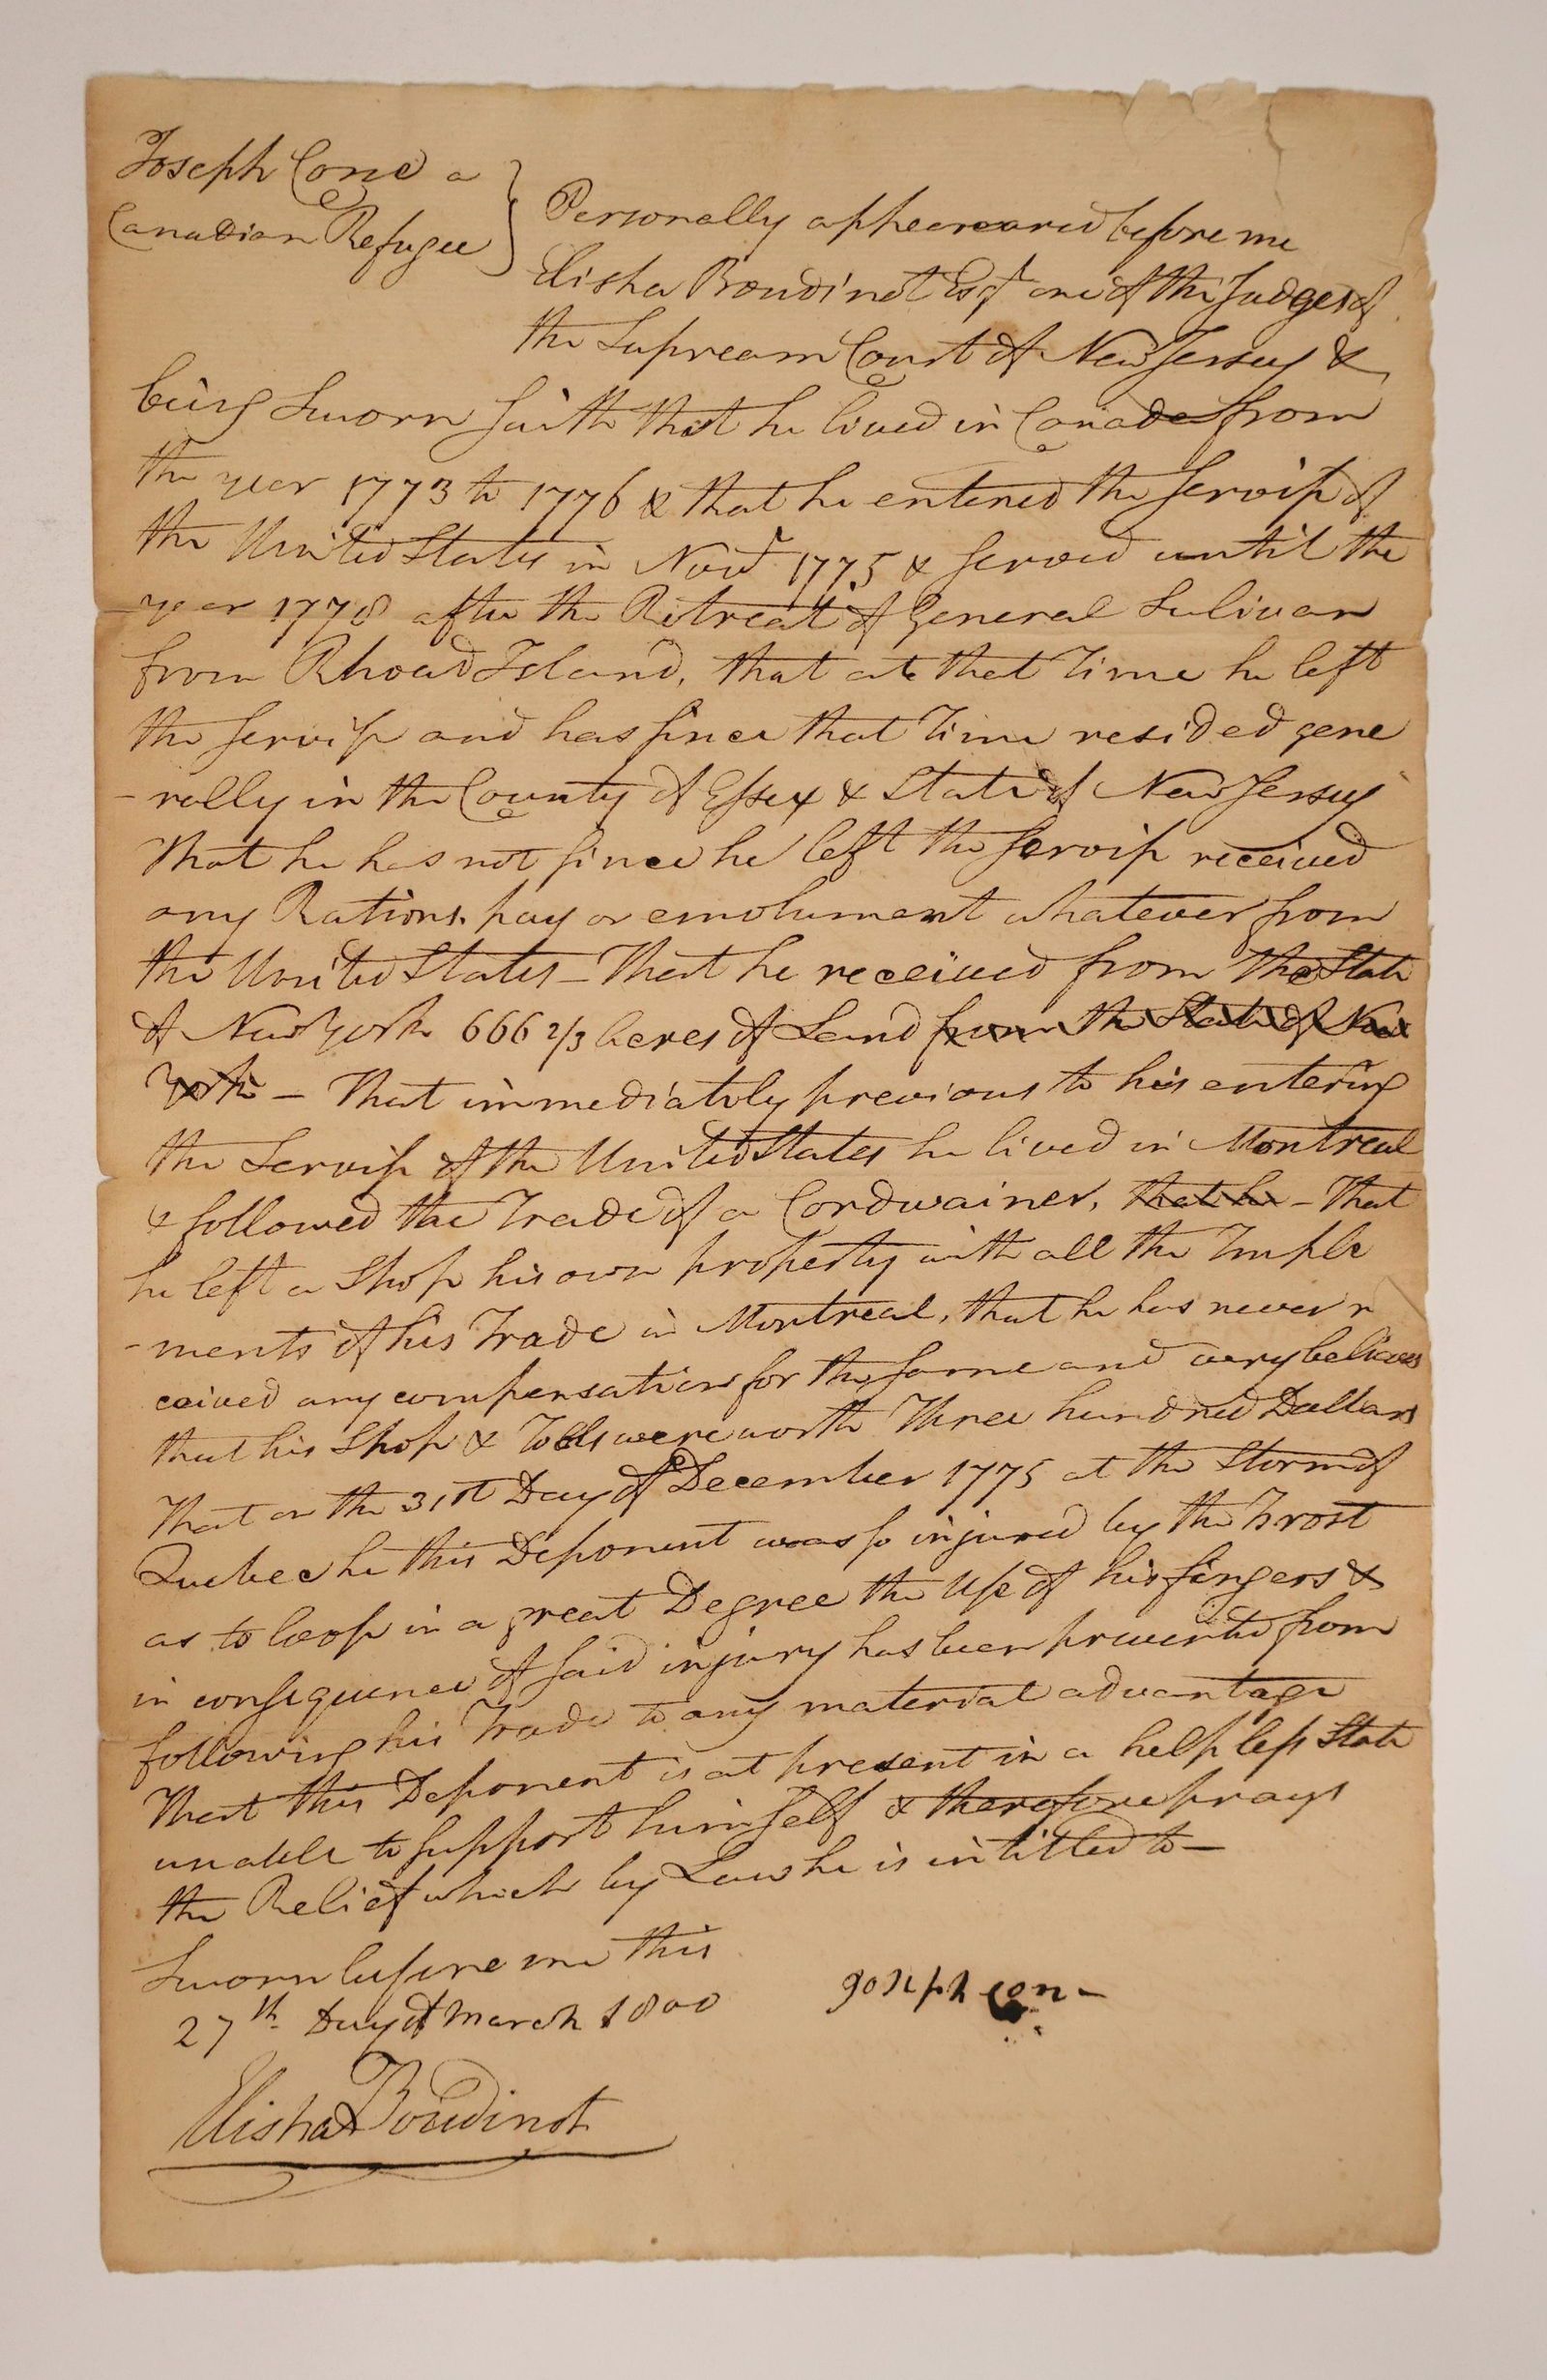 Joseph Cone a
Canadian Refugee } Personally appeareared before me
Elisha Boudinot Esqr one of the Judges of
the Supream Court of New Jersey &
being Sworn saith that he lived in Canada from
the year 1773 to 1776 & that he entered the Servise of
the United States in Novr 1775 & served until the
year 1778 after the Retreat of General Sulivan
from Rhoad Island, that at that Time he left
the servise and has since that Time resided gene
-rally in the County of Essex & State of New Jersey
That he has not since he left the servise received
any Rations, pay or emolument whatever from
the United States - That he received from the State
of New York 666 2/3 Acres of Land from the State of New
York - That immediately previous to his entering
the Servise of the United States he lived in Montreal
& followed the Trade of a Cordwainer, that he - That
he left a Shop his own property with all the Imple
-ments of his Trade in Montreal, that he has never r
ceived any compensation for the same and very believes
that his Shop & Tolls were worth Three hundred Dollars
That on the 31st Day of December 1775 at the Storm of
Quebec he this Deponent was so injured by the Frost
as to loose in a great Degree the Use of his fingers &
in consequence of said injury has been prevented from
following his Trade to any material advantage
That this Deponent is at present in a helpless State
unable to support himself & therefore prays
the Relief which by Law he is intitled to -
Sworn before me this
27th Day of March 1800
Joseph Con-
Elisha Boudinot